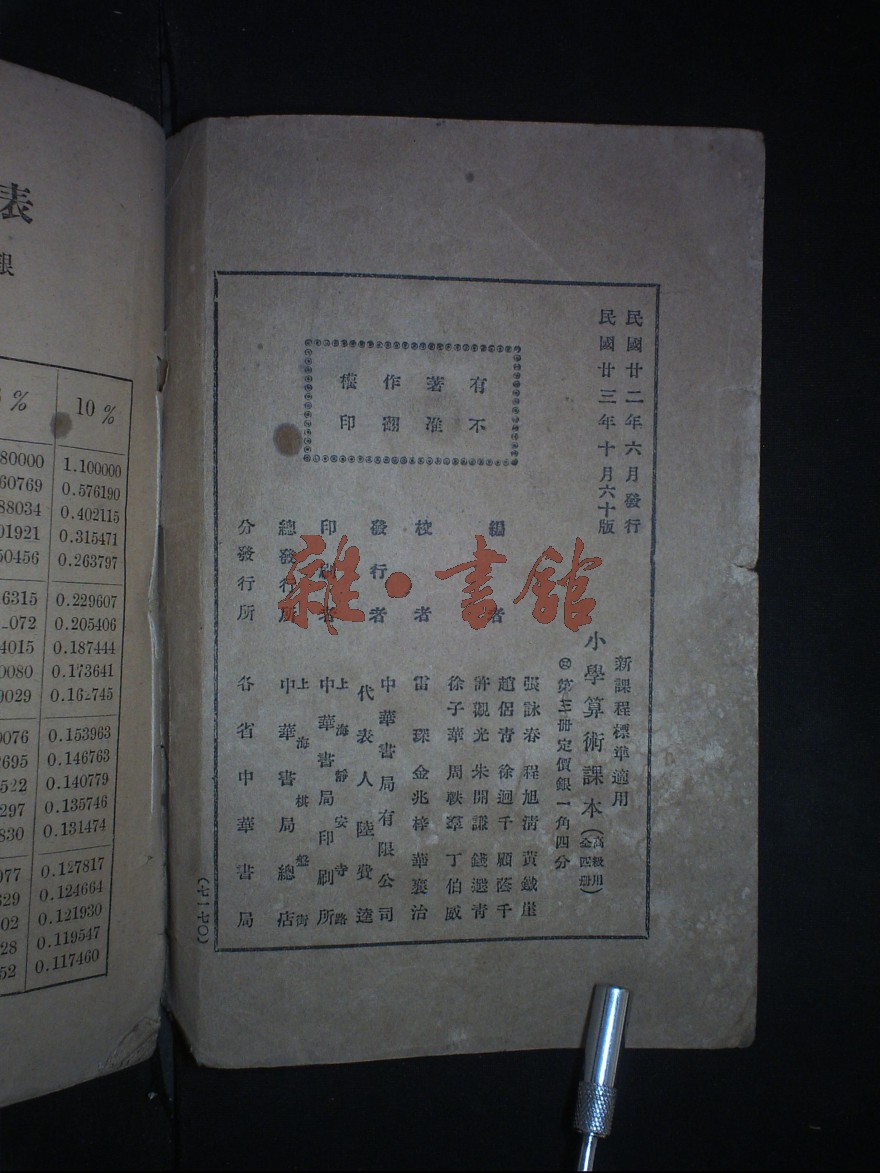 民國廿二年六月發行
民國廿三年十月六十版
有著作權
不准翻印
新課程標準適用
小學算術課本(高級用全四冊)
第三冊定價銀一角四分
編者
張詠春 程旭清 黃鐵崖
趙侶青 徐迥千 顧蔭千
許觀光 朱開謙 錢選青
徐子華 周軼羣 丁伯威
校者
雷琛 金兆梓 華襄治
發行者
中華書局有限公司
代表人 陸費逵
印刷者
上海靜安寺路
中華書局印刷所
總發行所
上海棋盤街
中華書局總店
分發行所
各省中華書局
(七一七〇)
雜·書館
表
銀
%
10 %
80000 1.100000
60769 0.576190
38034 0.402115
01921 0.315471
50456 0.263797
6315 0.229607
072 0.205406
4015 0.187444
0080 0.173641
0029 0.162745
0076 0.153963
2695 0.146763
522 0.140779
297 0.135746
830 0.131474
077 0.127817
329 0.124664
02 0.121930
28 0.119547
52 0.117460